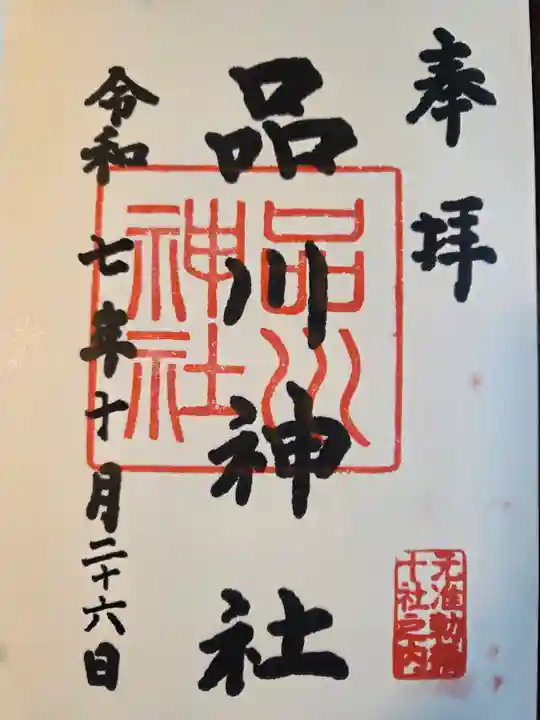 奉拝
品川神社
令和七年十月二十六日
品川
神社
元准勅祭
十社之内